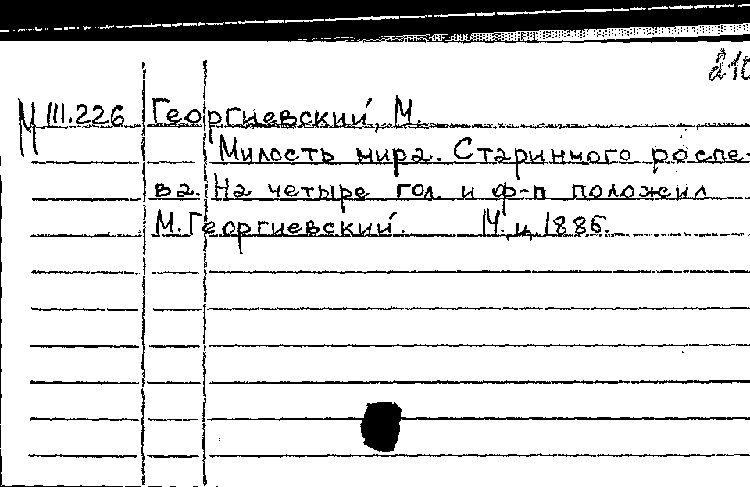 210
М III.226 Георгиевский, М.
Милость мира. Старинного роспе-
ва. На четыре гол. и ф-п положил
М. Георгиевский. М, ц, 1886.